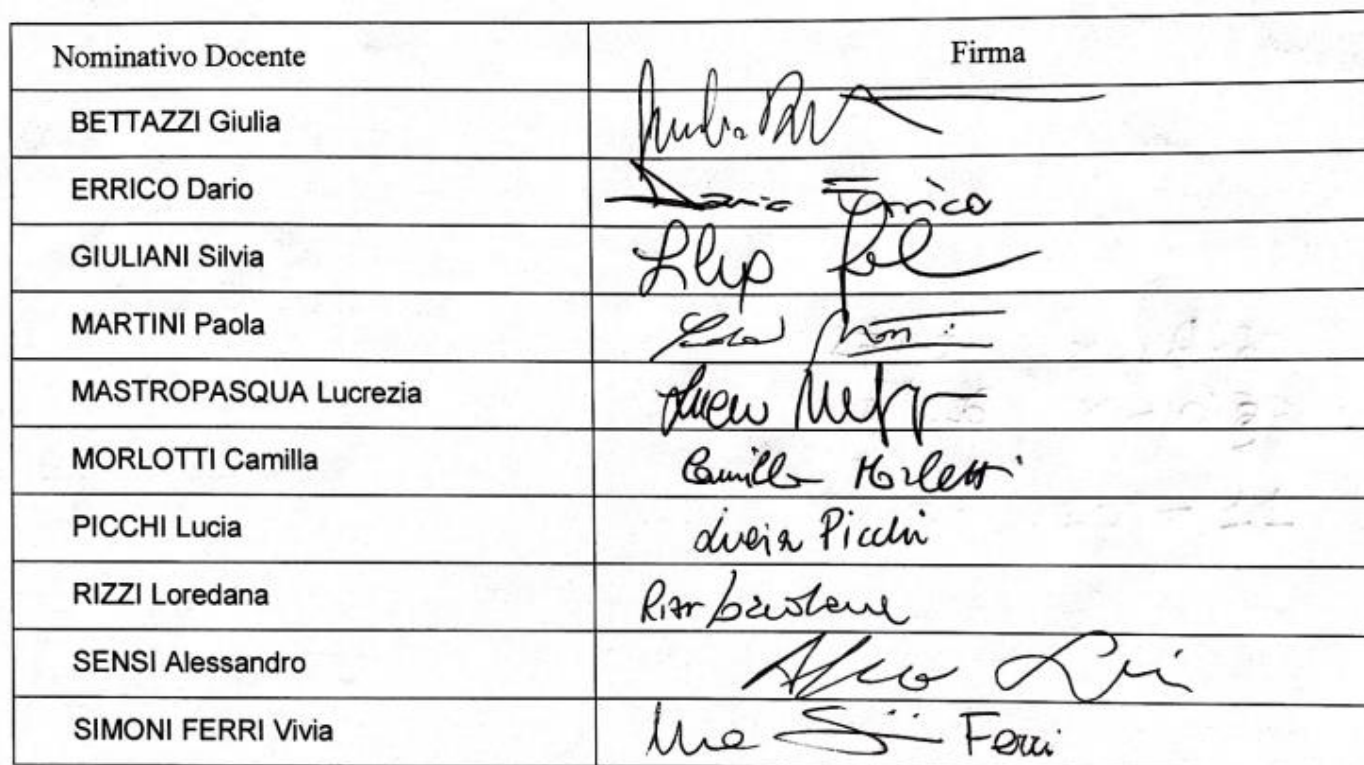 Nominativo Docente Firma
BETTAZZI Giulia Giulia
ERRICO Dario Dario Errico
GIULIANI Silvia
MARTINI Paola
MASTROPASQUA Lucrezia
MORLOTTI Camilla Camilla Morlotti
PICCHI Lucia Lucia Picchi
RIZZI Loredana
SENSI Alessandro
SIMONI FERRI Vivia Ferri